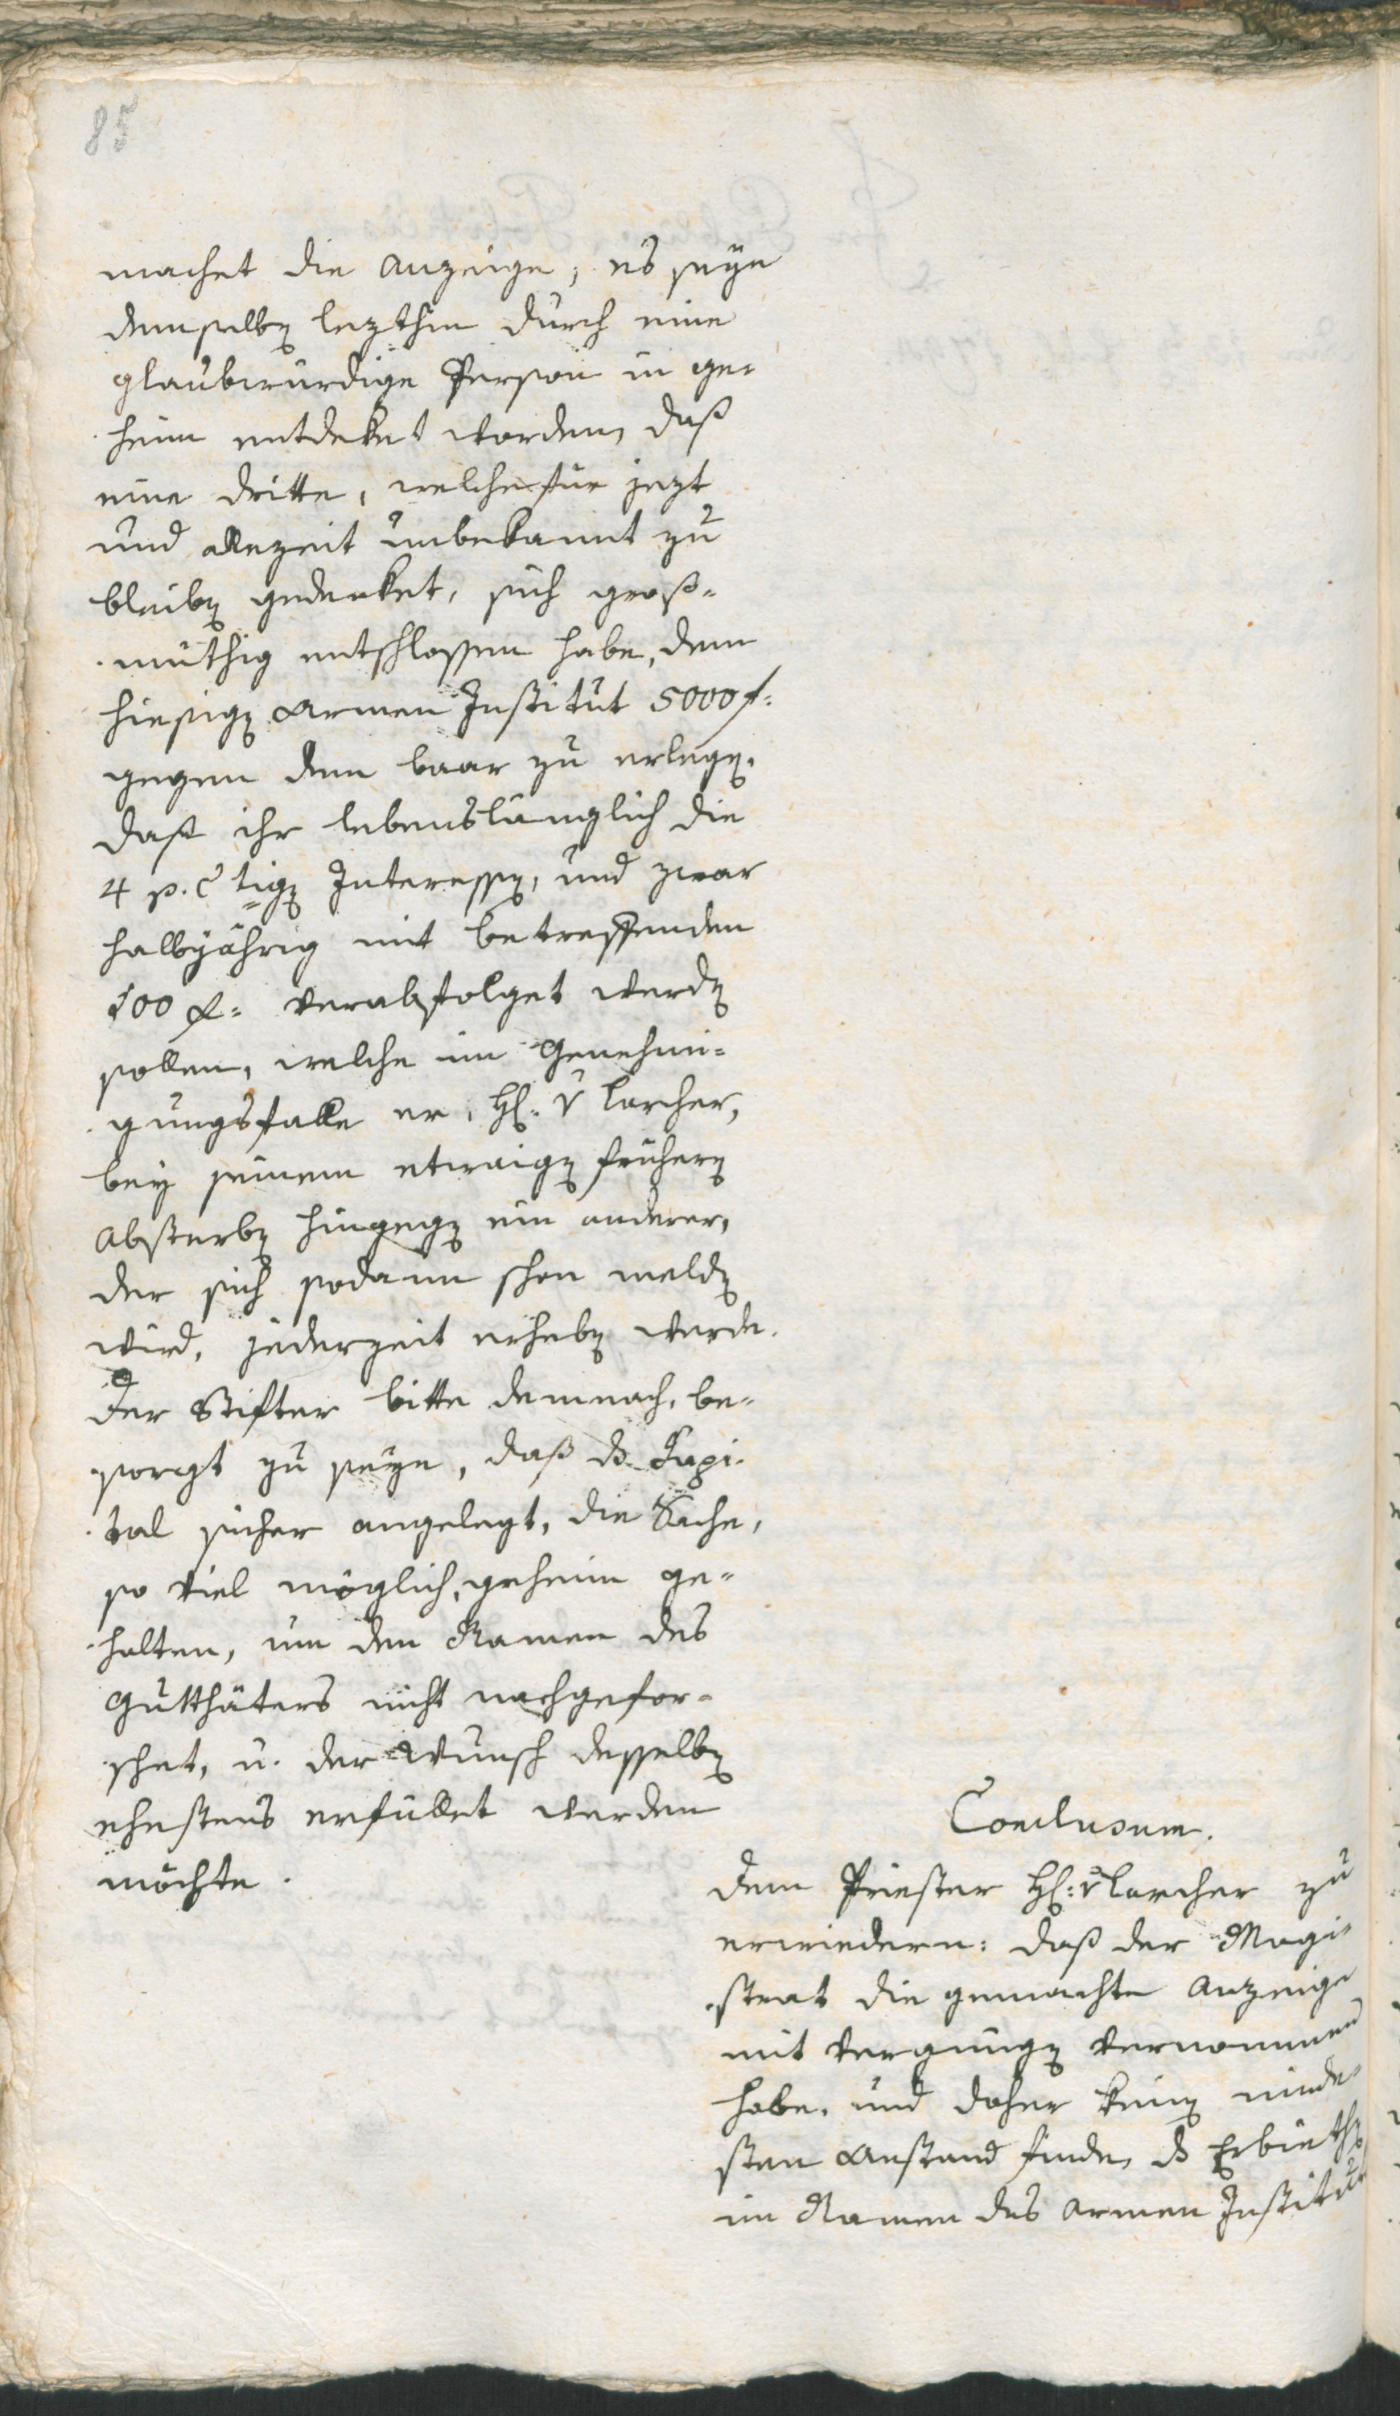 85
machet die Anzeige, es seye
demselben lezthin durch eine
glaubwürdige Person in ge¬
heim entdeket worden, daß
eine dritte, welche für jezt
und allezeit unbekannt zu
bleiben gedenket, sich groß¬
müthig entschlossen habe, dem
hiesigen Armen Institut 5000 f:
gegen dem baar zu erlegen,
daß ihr lebenslänglich die
4 p. Ctigen Interessen, und zwar
halbjährig mit betreffenden
100 f: verabfolget werden
sollen, welche im Genehmi¬
gungsfalle er, H: v Larcher,
bey seinem etwaigen frühern
Absterben hingegen ein anderer,
der sich sodann schon melden
wird, jederzeit erheben werde.
Der Stifter bitte demnach, be¬
sorgt zu seyn, daß ds Kapi¬
tal sicher angelegt, die Sache,
so viel möglich, geheim ge¬
halten, um den Namen des
Gutthäters nicht nachgefor¬
schet, u. der Wunsch desselben
ehestens erfüllet werden
möchte.
Conclusum.
Dem Priester H: v Larcher zu
erwiedern: daß der Magi¬
strat die gemachte Anzeige
mit Vergnügen vernommen
habe, und daher keinen minde¬
sten Anstand finde, ds Erbiethen
im Namen des Armen Institut